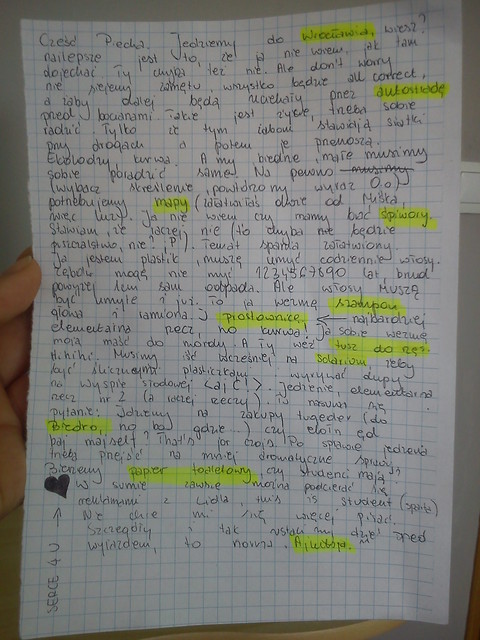 Cześć Piecha. Jedziemy do Wrocławia, wiesz?
najlepsze jest to, że ja nie wiem, jak tam
dojechać Ty chyba też nie. Ale don't worry
nie siejemy zamętu, wszystko będzie all correct,
a żaby dalej będą uciekały przez autostradę
przed bocianami takie jest życie, trzeba sobie
radzić. Tylko że tym żabom stawiają siatki
przy drogach a potem je przenoszą.
Ekolodzy, kurwa. A my biedne, małe musimy
sobie poradzić same. Na pewno musimy
(wybacz skreślenie, powtórzony wyraz O.o)
potrzebujemy mapy (załatwiłaś obie od
więc luz). Ja nie wiem czy mamy brać śpiwory.
Stawiam, że raczej nie (to chyba nie będzie
pszczelństwo, nie? ;P) Temat spania załatwiony
Ja jestem plastik, muszę umyć codziennie włosy.
Zębów mogę nie myć 1234567890 lat, brud
powyżej 1cm sam odpada. Ale włosy MUSZĄ
być umyte i już. To ja wezmę szampon
głowa i ramiona. I prostownicę ← najbardziej
elementarna rzecz, no kurwa, ja sobie wezmę
moją maść do mordy. A Ty weź tusz do rzęs.
Hihihi. Musimy iść wcześniej na solarium, żeby
być ślicznymi plasticzkami i wyrywać dupy
na wyspie słodowej <ajć!>. Jedzenie, elementarna
rzecz nr 2 (a raczej rzeczy). Tu nasuwa się
pytanie: Idziemy na zakupy tugeder (do
Biedro, no bo gdzie...) czy eloin end
baj majself? That's jor czojs. Po sprawie jedzenia
trzeba przejść na mniej dramatyczne sprawy.
Bierzemy papier toaletowy, czy studenci mają?
W sumie zawsze można podcierać się
reklamami z Lidla, this is student (sparta)
Nie chce mi się więcej pisać.
Szczegóły i tak ustalimy dzień przed
wyjazdem, to norma.
SERCE 4 U →